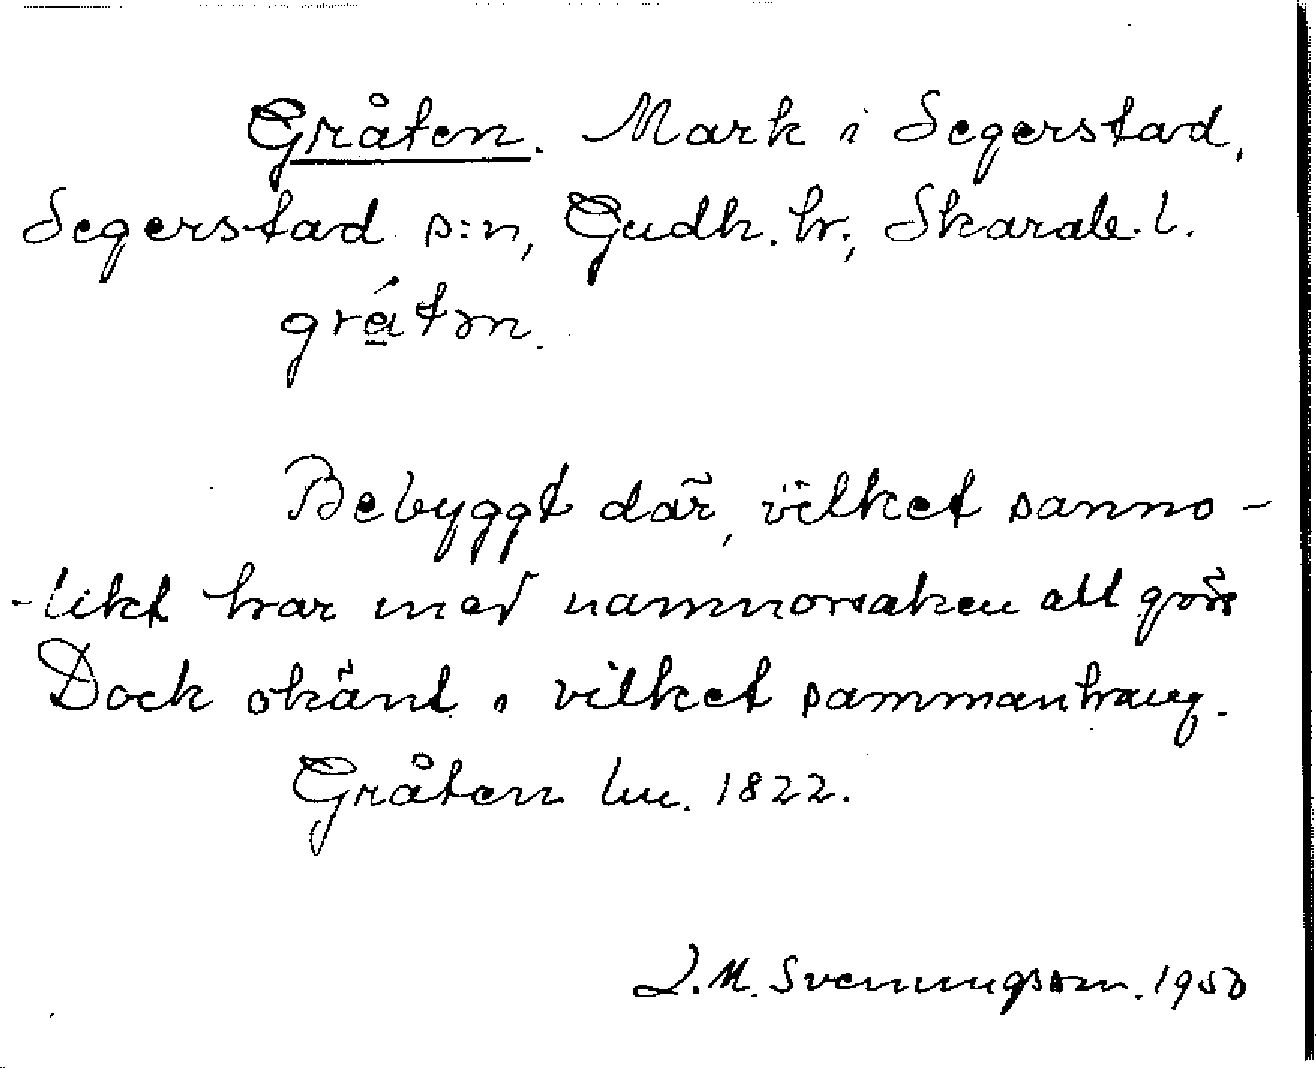 Gråten. Mark i Segerstad,
Segerstad s:n, Gudh. hr., Skarab. l.
Bebyggt där, vilket sanno-
-likt har med namnorsaken att göra
Dock okänt i vilket sammanhang.
Gråten lm. 1822.
L. M. Svenungsson. 1950